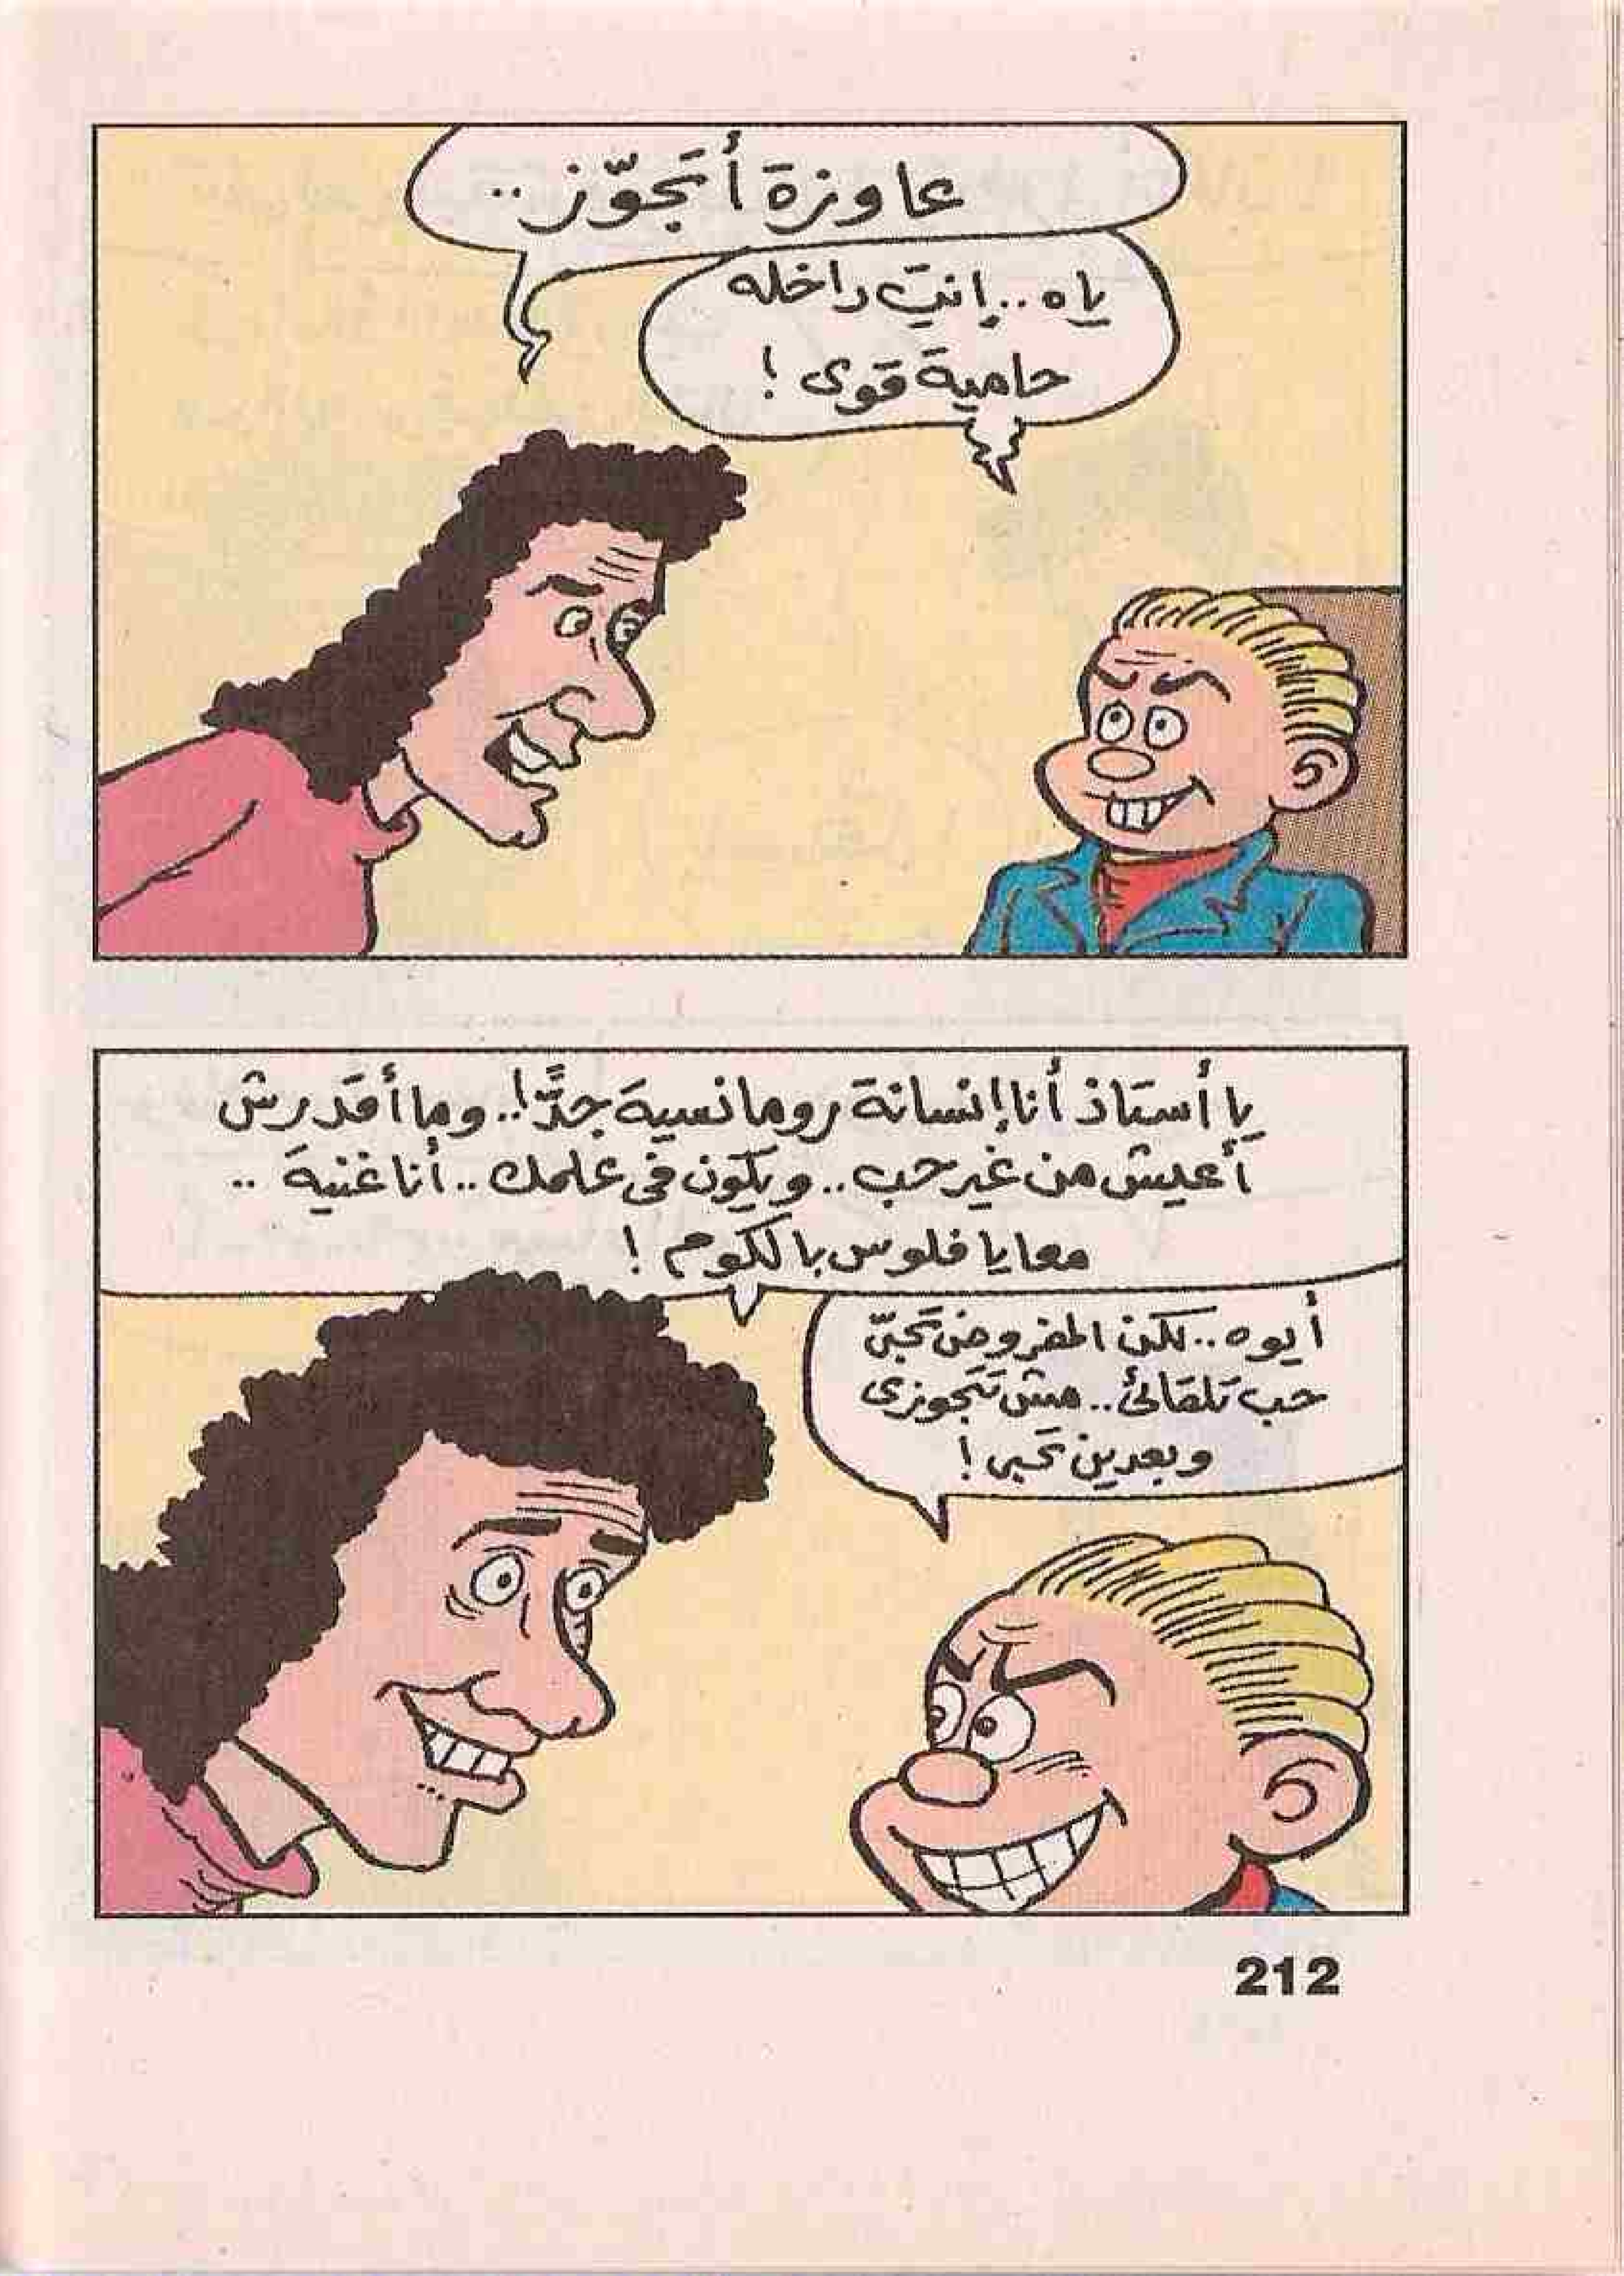 عاوزة أتَجوّز ..
ياه .. إنتِ داخله
حامية قوى !
يا أستاذ أنا إنسانة رومانسية جدًّا !.. وما أقدرش
أعيش من غير حب .. ويكون فى علمك .. أنا غنية ..
معايا فلوس بالكوم !
أيوه .. لكن المفروض تحبّى
حب تلقائى .. مش تتجوزى
وبعدين تحبى !
212